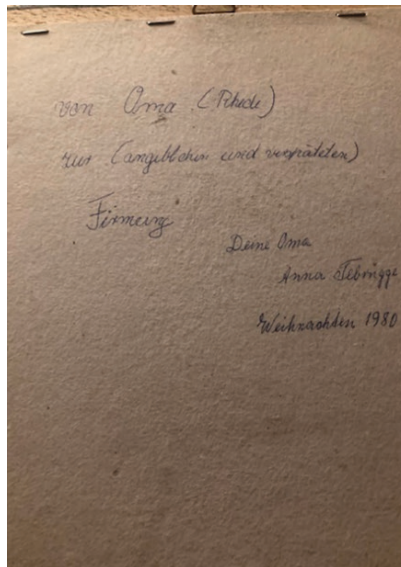 von Oma (Rhede)
zur (angeblichen und verspäteten)
Firmung
Deine Oma
Anna Tebrügge
Weihnachten 1980